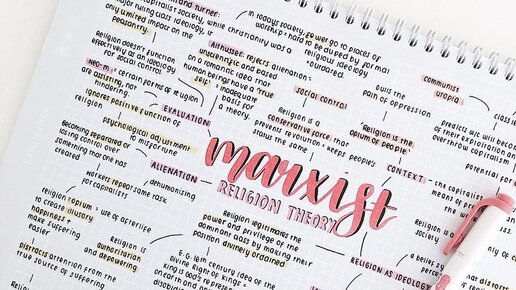 and turner:
only limited impact on the
peasantry.
major ruling class ideology, is
society, while christianity was a
in todays society,
power go to places of
to be duped by formal
religious ideology
ordained.
Religion doesn't function
effectively as an ideology
for social control
Althusser: rejects alienation:
unscientific and based
on a romantic idea that
human beings have a 'true
self' = inadequate
basis for a
theory.
neo-m: certain forms of religion
are assisting, not
hindering.
ignores positive function of
religion
psychological adjustment
to misfortune
EVALUATION
social control
Religion is a
conservative force that
prevents revolution = keeps
status the same
Religion is the
opium of
people's
communist
utopia
dull the
pain of oppression
class
predicts we will become
of their exploitation an
overthrow capitalism
marxist
RELIGION THEORY
CONTEXT
the capitalis
means of pr
Becoming separated or
losing control over
something man has
created
ALIENATION
workers repeat same task
for capitalists
dehumanising
religion opium
to create illusory
happiness =
make suffering
easier
use of afterlife
authoritarian
and
depowering
distracts attention from the
true source of suffering
Religion legitimates the
power and privilege of the
dominant class by making their
position divinely ordained.
E.G. 16th century idea of the
divine right of kings =
RELIGION AS IDEOLOGY
a belief